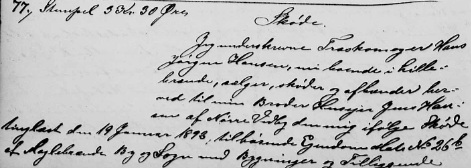 77, Stempel 3 Kr. 30 Øre,
Skøde.
Jeg underskrevne Træskomager Hans
Jørgen Hansen, nu boende i Lille-
brænde, sælger, skøder og afhænder her-
ved til min Broder Husejer Jens Han-
sen af Nørre Vedby den mig ifølge Skøde
tinglæst den 19 Januar 1893, tilhørende Ejendom Matr. No 25 b
af Maglebrænde By og Sogn med Bygninger og Tilliggende